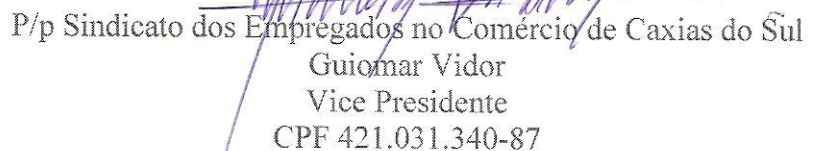 P/p Sindicato dos Empregados no Comércio de Caxias do Sul
Guiomar Vidor
Vice Presidente
CPF 421.031.340-87